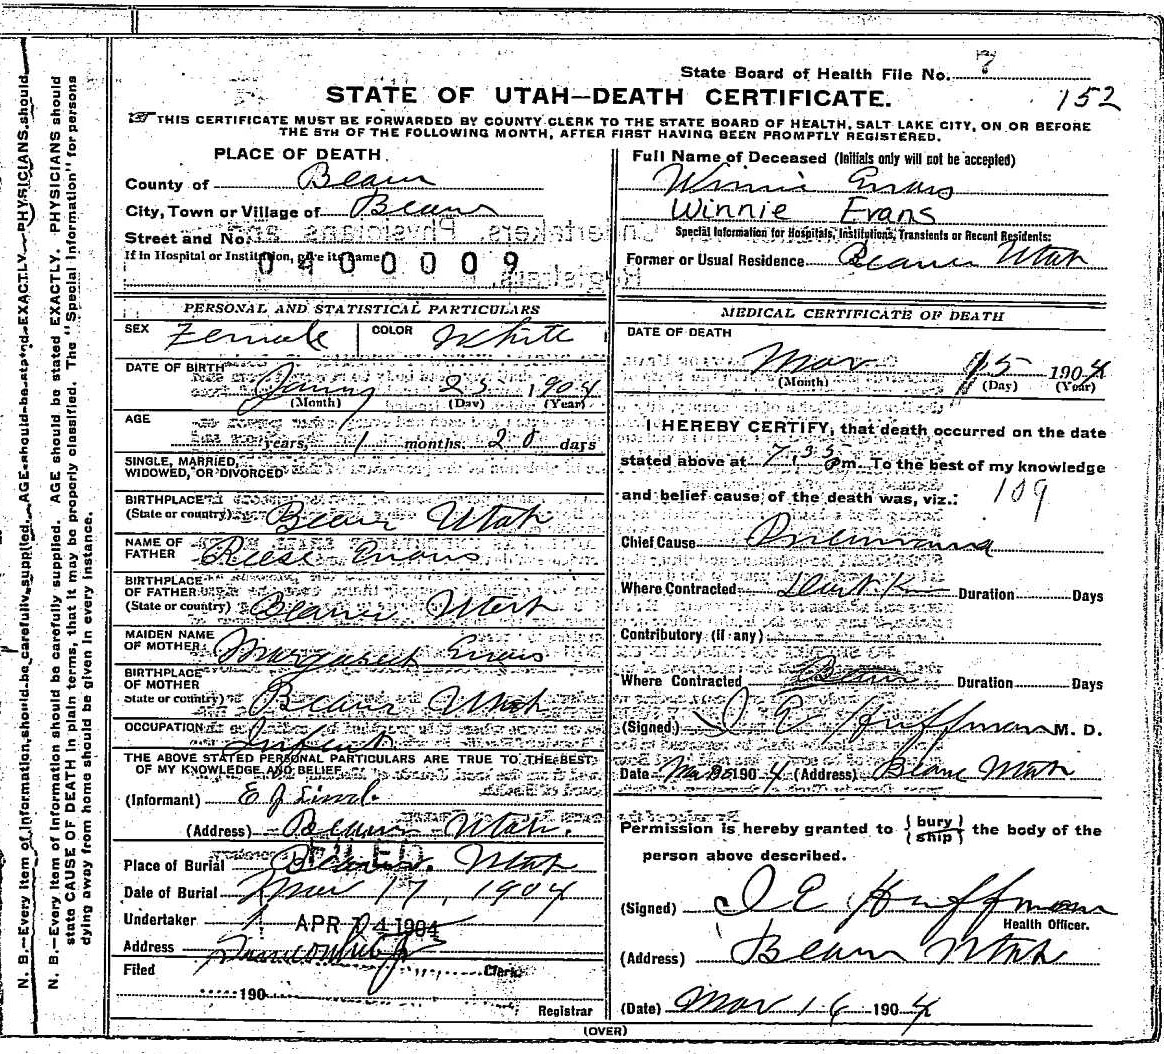 N. B.—Every item of information should be carefully supplied. AGE should be stated EXACTLY. PHYSICIANS should
N. B.—Every item of information should be carefully supplied. AGE should be stated EXACTLY. PHYSICIANS should
state CAUSE OF DEATH in plain terms, that it may be properly classified. The "Special Information" for persons
dying away from home should be given in every instance.
State Board of Health File No. 7
STATE OF UTAH—DEATH CERTIFICATE. 152
THIS CERTIFICATE MUST BE FORWARDED BY COUNTY CLERK TO THE STATE BOARD OF HEALTH, SALT LAKE CITY, ON OR BEFORE
THE 5TH OF THE FOLLOWING MONTH, AFTER FIRST HAVING BEEN PROMPTLY REGISTERED.
PLACE OF DEATH.
County of Beaver
City, Town or Village of Beaver
Street and No.
If in Hospital or Institution, give its name
0400009
Full Name of Deceased (Initials only will not be accepted)
Winnie Evans
Winnie Evans
Special Information for Hospitals, Institutions, Transients or Recent Residents:
Former or Usual Residence Beaver Utah
PERSONAL AND STATISTICAL PARTICULARS
SEX Female COLOR White
DATE OF BIRTH
(Month) (Day) (Year)
AGE
years, 1 months, 20 days
SINGLE, MARRIED,
WIDOWED, OR DIVORCED
BIRTHPLACE
(State or country) Beaver Utah
NAME OF
FATHER Reese Evans
BIRTHPLACE
OF FATHER
(State or country) Beaver Utah
MAIDEN NAME
OF MOTHER Margaret Evans
BIRTHPLACE
OF MOTHER
State or country) Beaver Utah
OCCUPATION Infant
THE ABOVE STATED PERSONAL PARTICULARS ARE TRUE TO THE BEST
OF MY KNOWLEDGE AND BELIEF
(Informant) E J
(Address) Beaver Utah.
Place of Burial Beaver. Utah
FILED
Date of Burial Mar 17, 1904
Undertaker
APR 4 1904
Address
Filed Clerk
190
Registrar
MEDICAL CERTIFICATE OF DEATH
DATE OF DEATH
Mar 15 1904
(Month) (Day) (Year)
I HEREBY CERTIFY, that death occurred on the date
stated above at 7.35 Pm. To the best of my knowledge
and belief cause of the death was, viz.: 109
Chief Cause Pneumonia
Where Contracted Don't Know Duration Days
Contributory (if any)
Where Contracted Beaver Duration Days
(Signed) J E Huffman M. D.
Date Mar 1904 (Address) Beaver Utah
Permission is hereby granted to {bury/ship} the body of the
person above described.
(Signed) J E Huffman
Health Officer.
(Address) Beaver Utah
(Date) Mar 16 1904
(OVER)